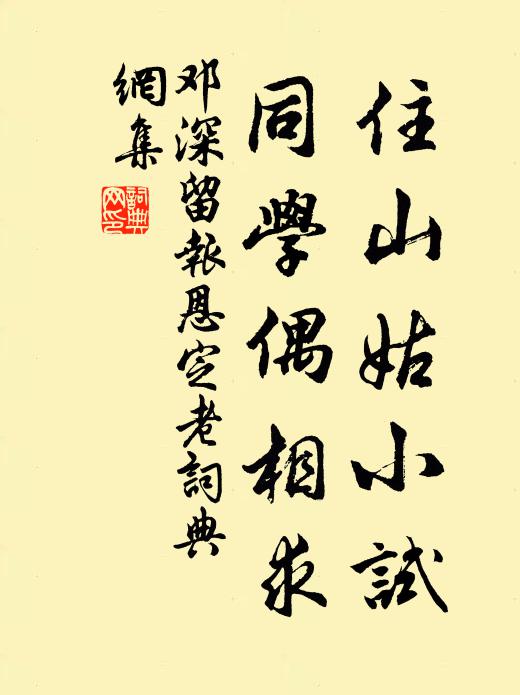 住山姑小試
同學偶相求
邓深留報恩定老詞典
網集
詞典網印